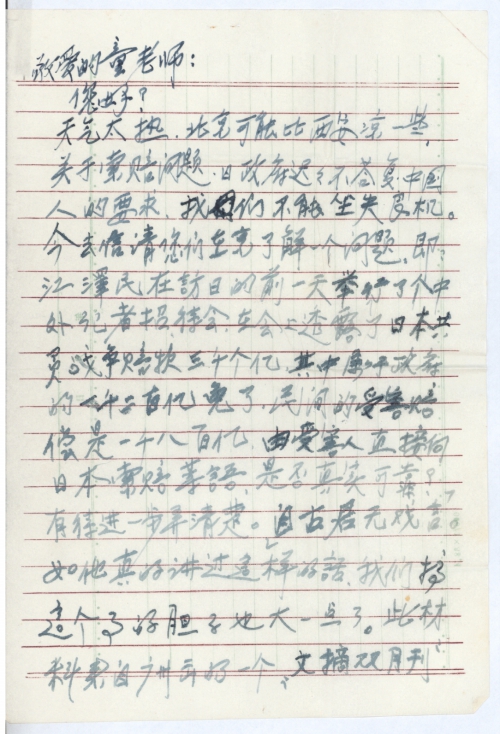 敬爱的童老师：
您好？
天气太热，北京可能比西安凉一些，
关于索赔问题，日政府迟迟不答复中国
人的要求，我们不能坐失良机。
今去信请您们在京了解一个问题，即：
江澤民在訪日的前一天举行了个中
外记者招待会，在会上透露了日本共
员战争赔款三千个亿，其中属于政府
的一千二百亿免了，民间的受害赔
偿是一千八百亿，由受害人直接向
日本索赔等语，是否真实可靠？
有待进一步弄清楚。自古君无戏言。
如他真的讲过这样的話，我们搞
这个事的胆子也大一点了。此材
料来自广州市的一个"文摘双月刊"